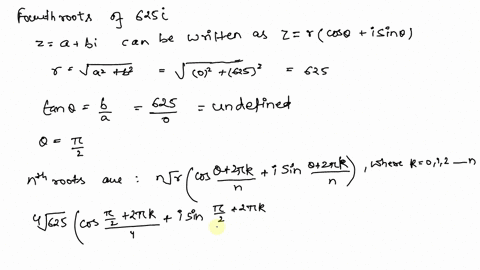 Fourth roots of 625i
z = a + bi can be written as z = r(cosθ + i sinθ)
r = √(a² + b²) = √((0)² + (625)²) = 625
tanθ = b/a = 625/0 = undefined
θ = π/2
nth roots are : n√r (cos (θ+2πk)/n + i sin (θ+2πk)/n), where k = 0,1,2 --- n
4√625 (cos (π/2 + 2πk)/4 + i sin π/2 + 2πk